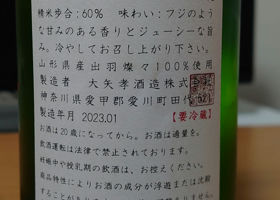 精米歩合:60% 味わい:フジのよう
な甘みのある香りとジューシーな旨
み。冷やしてお召し上がり下さい。
山形県産出羽燦々100%使用
製造者 大矢孝酒造株式
神奈川県愛甲郡愛川町田代 521
製造年月 2023.01 【要冷蔵】
お酒は20歳になってから。お酒は適量を。
飲酒運転は法律で禁止されております。
妊娠中や授乳期の飲酒は、お控えください。
商品特性によりお酒の成分が浮遊または沈殿
することがあり